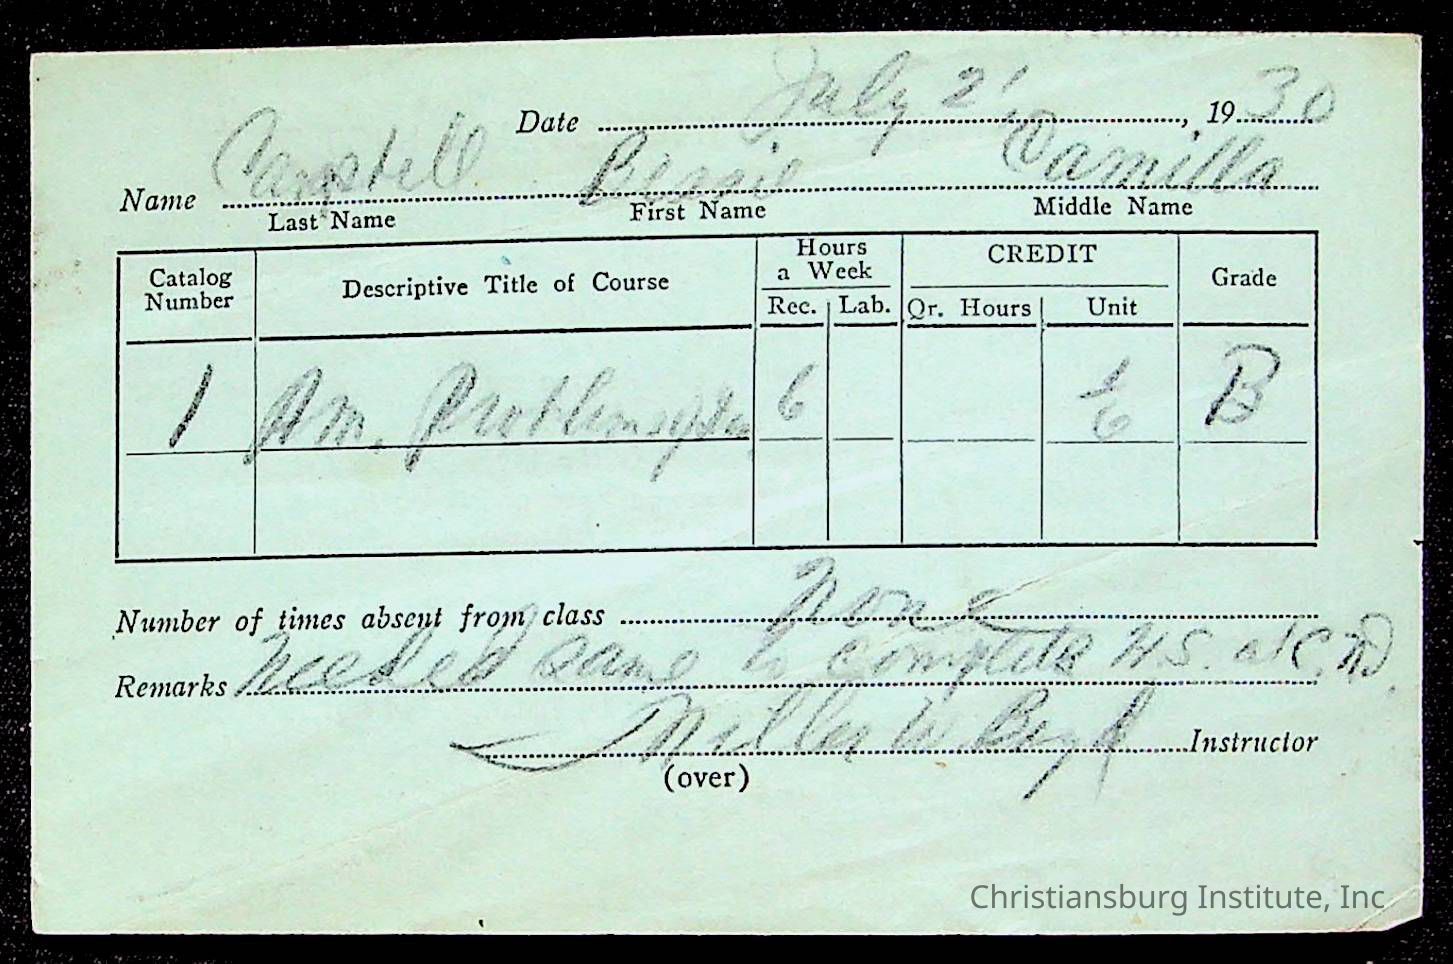 Date July 2, 1930
Name Campbell Bessie Camilla
Last Name First Name Middle Name
Catalog Number Descriptive Title of Course Hours a Week Rec. Lab. CREDIT Qr. Hours Unit Grade
1 Am. 6 B
Number of times absent from class none
Remarks Needed same to complete H.S. at C.
Miller W. Boyd Instructor
(over)
Christiansburg Institute, Inc